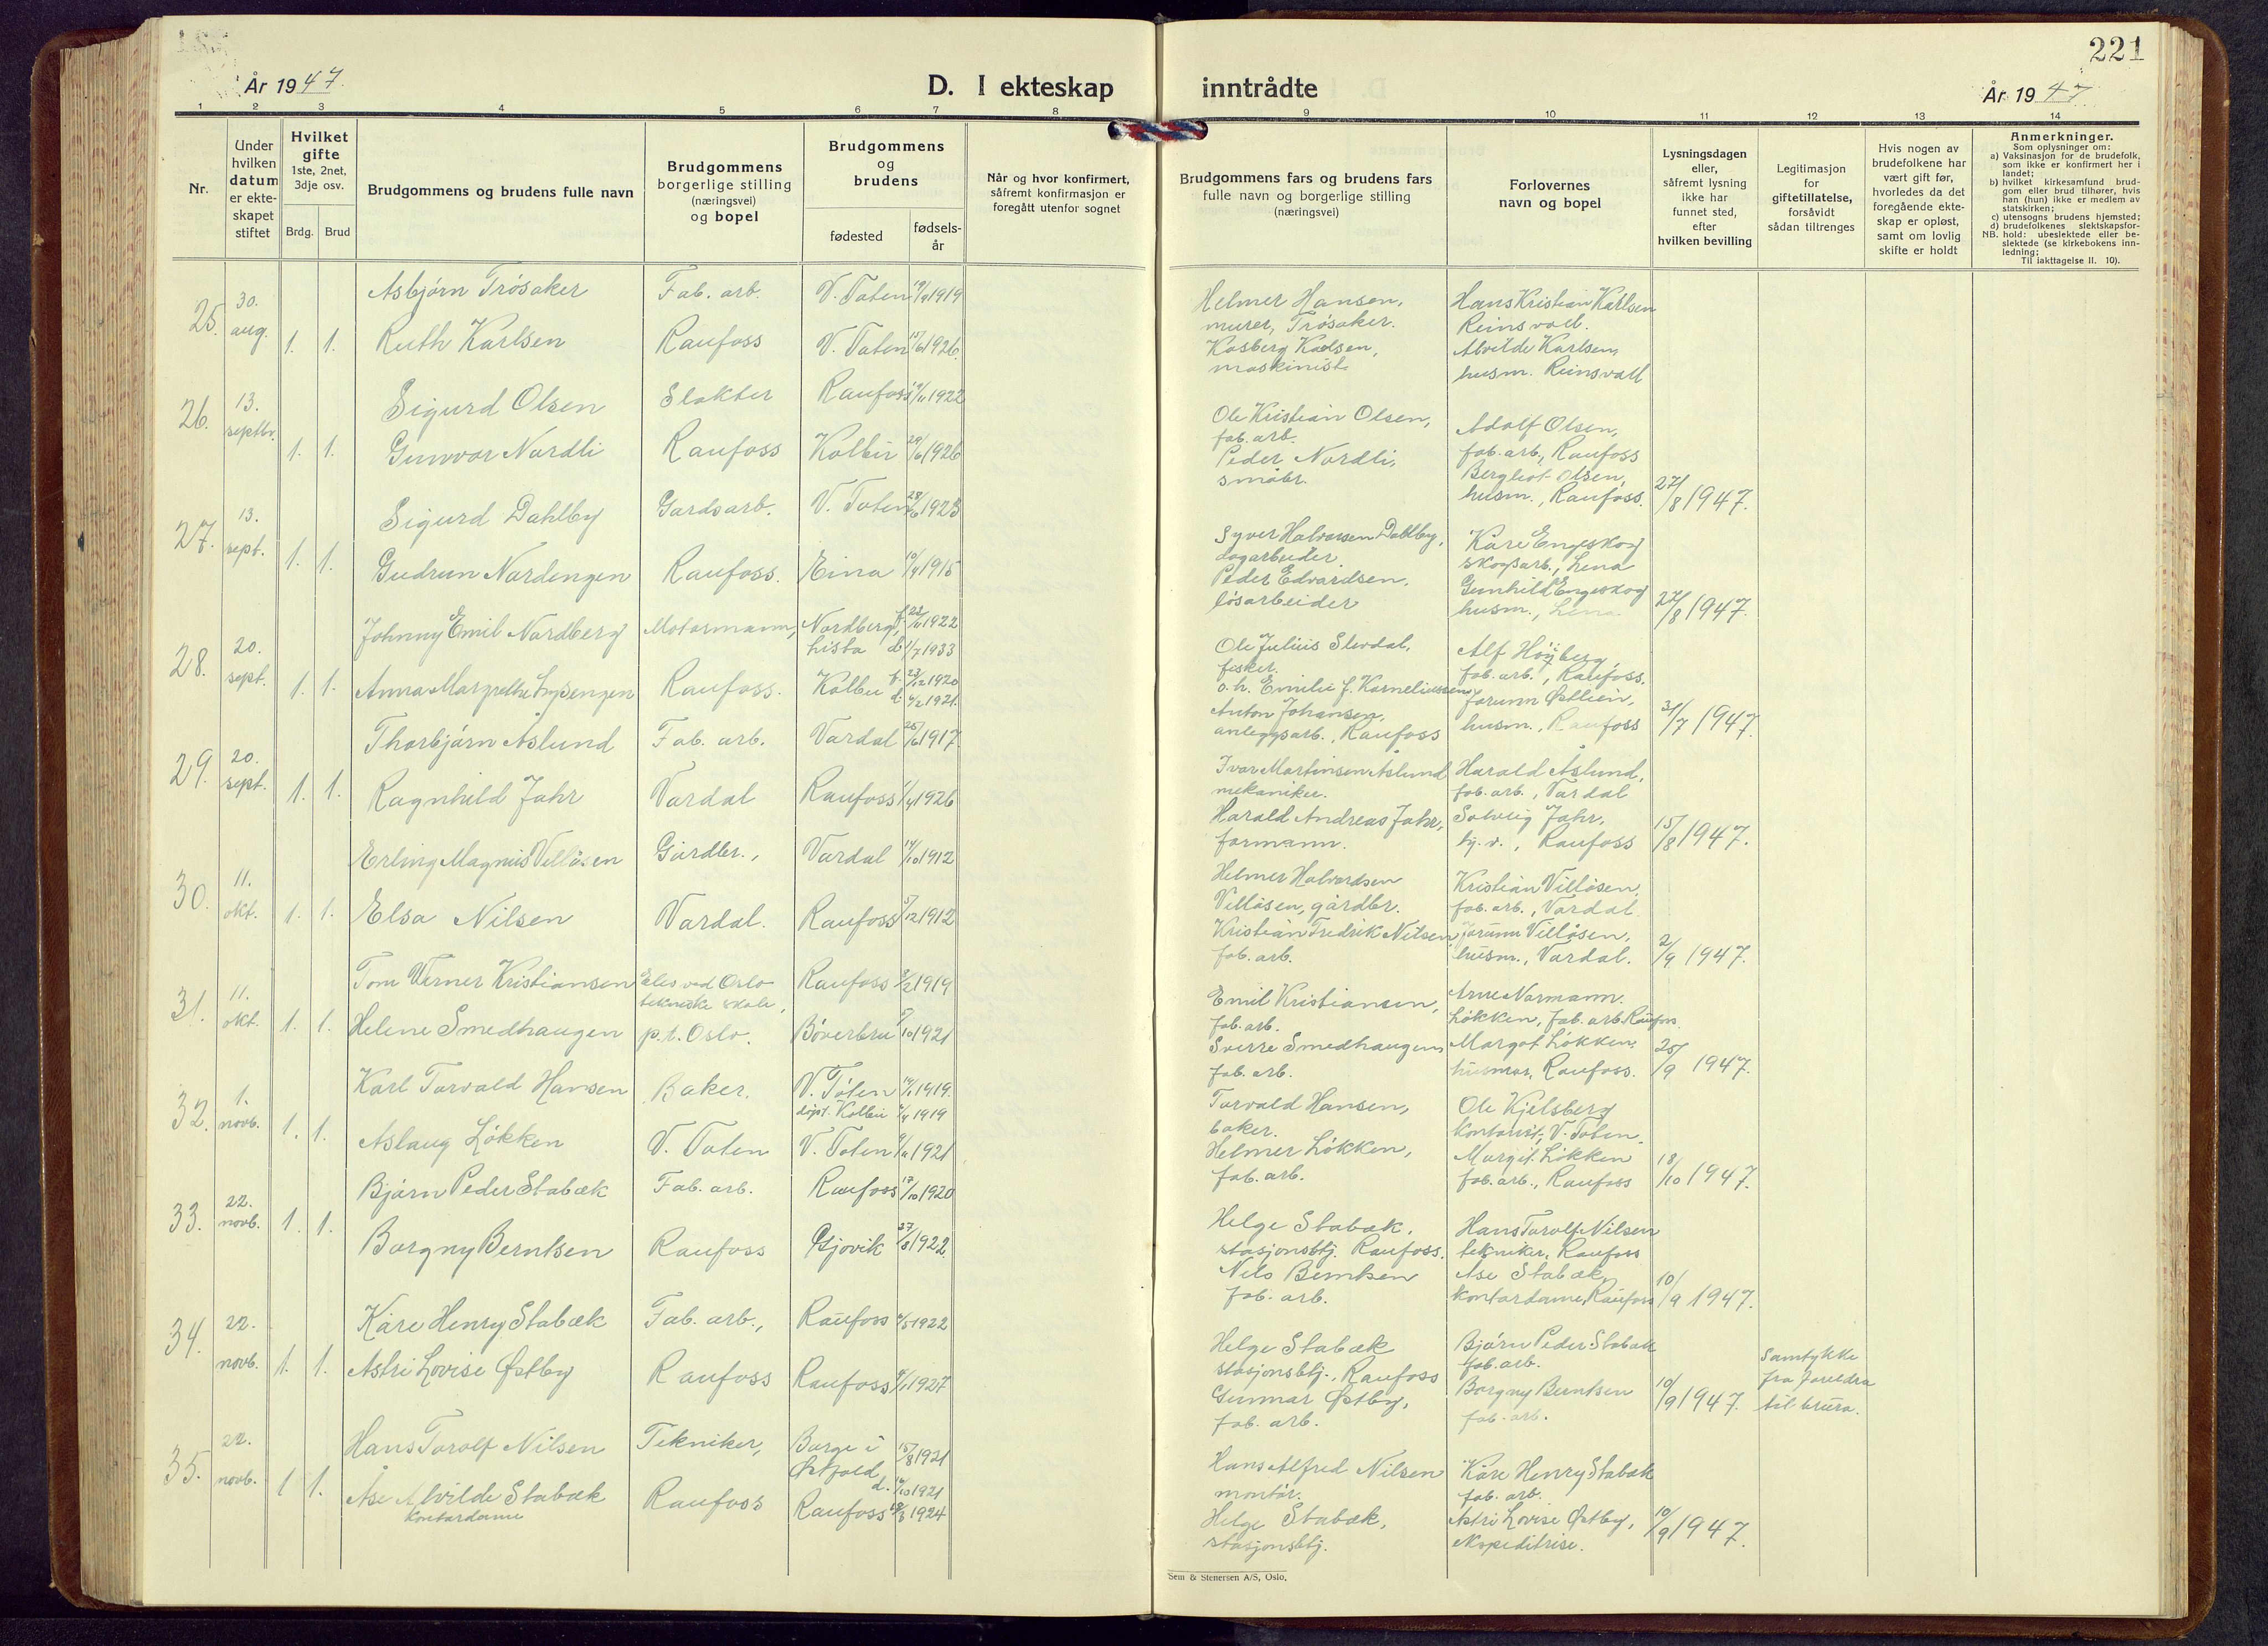 221
År 1947.
D. I ekteskap inntrådte
År 1947
1 2 3 4 5 6 7 8 9 10 11 12 13 14
Nr.
Under hvilken datum er ekteskapet stiftet
Hvilket gifte
1ste, 2net, 3dje osv.
Brdg. Brud
Brudgommens og brudens fulle navn
Brudgommens borgerlige stilling (næringsvei) og bopel
Brudgommens og brudens
fødested
fødselsår
Når og hvor konfirmert, såfremt konfirmasjon er foregått utenfor sognet
Brudgommens fars og brudens fars fulle navn og borgerlige stilling (næringsvei)
Forlovernes navn og bopel
Lysningsdagen eller, såfremt lysning ikke har funnet sted, efter hvilken bevilling
Legitimasjon for giftetillatelse, forsåvidt sådan tiltrenges
Hvis nogen av brudefolkene har vært gift før, hvorledes da det foregående ekteskap er opløst, samt om lovlig skifte er holdt
Anmerkninger.
Som oplysninger om:
a) Vaksinasjon for de brudefolk, som ikke er konfirmert her i landet;
b) hvilket kirkesamfund brudgom eller brud tilhører, hvis han (hun) ikke er medlem av statskirken;
c) utensogns brudens hjemsted;
d) brudefolkenes slektskapsforhold: ubeslektede eller beslektede (se kirkebokens innledning;
NB.
Til iakttagelse II. 10).
25. 30. aug. 1. 1.
Asbjørn Trøsaker Fab. arb. V. Toten 1919
Ruth Karlsen Raufoss V. Toten 15/6 1926.
Helmer Hansen, murer, Trøsaker.
Karlsen, maskinist
Hans Kristian Karlsen Reinsvoll.
Alvilde Karlsen, husm. Reinsvoll
26. 13. septbr. 1. 1.
Sigurd Olsen Slakter Raufoss 1922
Gunvor Nordli Raufoss Kolbu 29/6 1926
Ole Kristian Olsen, fab. arb.
Peder Nordli, småbr.
Adolf Olsen, fab. arb., Raufoss
Bergliot Olsen, husm., Raufoss.
27/8 1947.
27. 13. sept. 1. 1.
Sigurd Dahlby Gardsarb. V. Toten 1923
Gudrun Nordengen Raufoss. Eina 10/4 1915
Syver Halvorsen Dahlby, dagarbeider.
Peder Edvardsen, løsarbeider
Kåre Engeskog skogsarb., Lena
Gunhild Engeskog husm., Lena
27/8 1947.
28. 20. sept. 1. 1.
Johnny Emil Nordberg Motormann, Nordberg, Lista f. 1922 d. 1/7 1933
Anna Margrethe Raufoss. Kolbu f. 23/12 1920 d. 6/2 1921.
Ole Julius fisker.
o.h. Emilie f. Korneliussen
Anton Johansen, anleggsarb., Raufoss
Alf Høiberg, fab. arb., Raufoss.
Jorunn Østlien, husm., Raufoss
31/7 1947.
29. 20. sept. 1. 1.
Thorbjørn Åslund Fab. arb. Vardal 25/6 1917.
Ragnhild Jahr Vardal Raufoss 1/4 1926
Ivar Martinsen Åslund mekaniker.
Harald Andreas Jahr, formann.
Harald Åslund, fab. arb., Vardal
Solveig Jahr, hj. v., Raufoss
15/8 1947.
30. 11. okt. 1. 1.
Erling Magnus Villåsen Gårdbr., Vardal 14/10 1912
Elsa Nilsen Vardal. Raufoss 5/12 1912
Helmer Halvordsen Villåsen, gårdbr.
Kristian Fredrik Nilsen, fab. arb.
Kristian Villåsen, fab. arb., Vardal.
Jorunn Villåsen, husm., Vardal.
2/9 1947.
31. 11. okt. 1. 1.
Tom Werner Kristiansen Elev ved Oslo tekniske skole, Raufoss 3/2 1919
Helene Smedhaugen p.t. Oslo. Bøverbru 1921
Emil Kristiansen, fab. arb.
Sverre Smedhaugen, fab. arb.
Arne Normann. Løkken, fab. arb. Raufoss
Margot Løkken, husmor, Raufoss.
25/9 1947.
32. 1. novb. 1. 1.
Karl Torvald Hansen Baker. V. Toten 1919.
døpt. Kolbu 1919
Aslaug Løkken V. Toten V. Toten 1921
Torvald Hansen, baker.
Helmer Løkken, fab. arb.
Ole Kjelsberg kontorist, V. Toten.
Margit Løkken fab. arb., Raufoss
18/10 1947.
33. 22. novb. 1. 1.
Bjørn Peder Stabæk Fab. arb. Raufoss 17/10 1920
Borgny Berntsen Raufoss Gjøvik 27/8 1922.
Helge Stabæk, stasjonsbtj. Raufoss.
Nils Berntsen fab. arb.
Hans Torolf Nilsen tekniker, Raufoss
Åse Stabæk, kontordame, Raufoss
10/9 1947.
34. 22. novb. 1. 1.
Kåre Henry Stabæk Fab. arb., Raufoss 1922
Astri Lovise Østby Raufoss Raufoss 1927
Helge Stabæk stasjonsbtj., Raufoss
Gunnar Østby, fab. arb.
Bjørn Peder Stabæk fab. arb.
Borgny Berntsen fab. arb.
10/9 1947.
Samtykke fra foreldra til brura.
35. 22. novb. 1 1.
Hans Torolf Nilsen Tekniker, Borge i Østfold 15/8 1921 d. 1921
Åse Alvilde Stabæk Raufoss Raufoss 1924
kontordame
Hans Alfred Nilsen montør.
Helge Stabæk, stasjonsbtj.
Kåre Henry Stabæk fab. arb.
Astri Lovise Østby, ekspeditrise.
10/9 1947.
Sem & Stenersen A/S, Oslo.